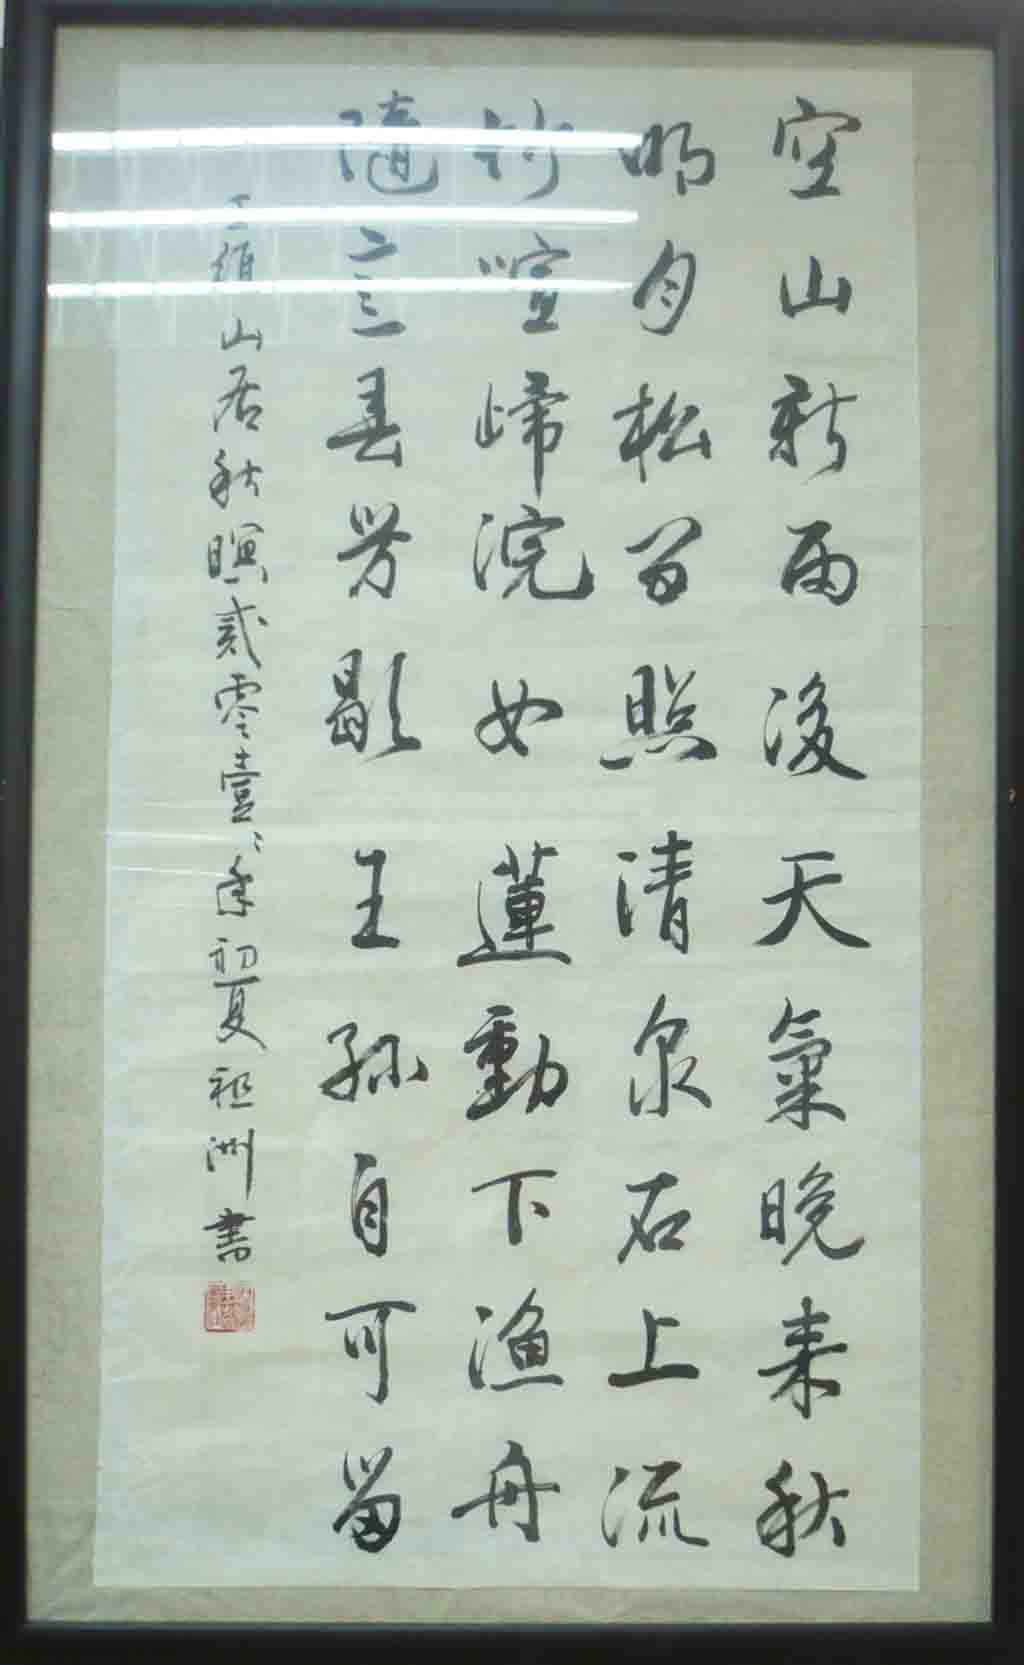 空山新雨後天氣晚来秋
明月松间照清泉石上流
竹喧歸浣女蓮動下渔舟
隨意春芳歇王孫自可留
王維山居秋暝貳零壹〻年初夏祖洲書